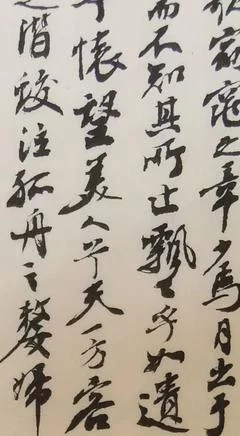 歌窈窕之章少焉月出于
而不知其所止飄〻乎如遺
予懷望美人兮天一方客
之潛蛟泣孤舟之嫠婦